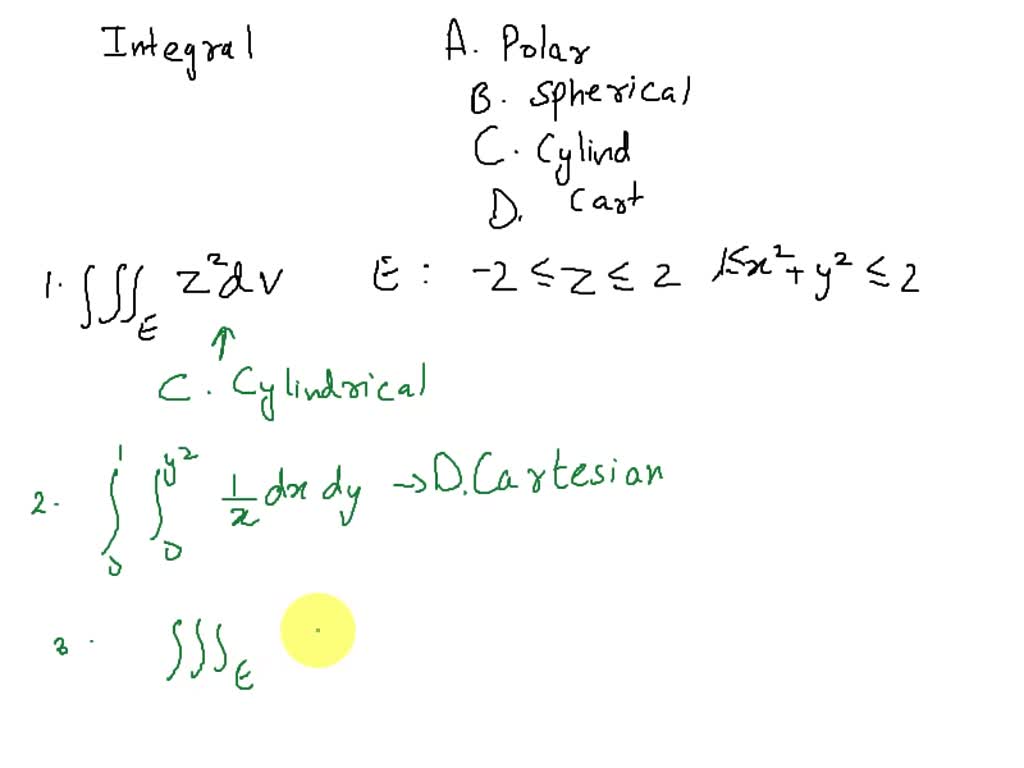 Integral A. Polar
B. Spherical
C. Cylind
D. Cart
1. ∭_E z²dv E : -2 ≤ z ≤ 2 1≤x²+y² ≤ 2
↑
C. Cylindrical
2. ∫₀¹ ∫₀^{y²} 1/x dx dy → D. Cartesian
3. ∭_E